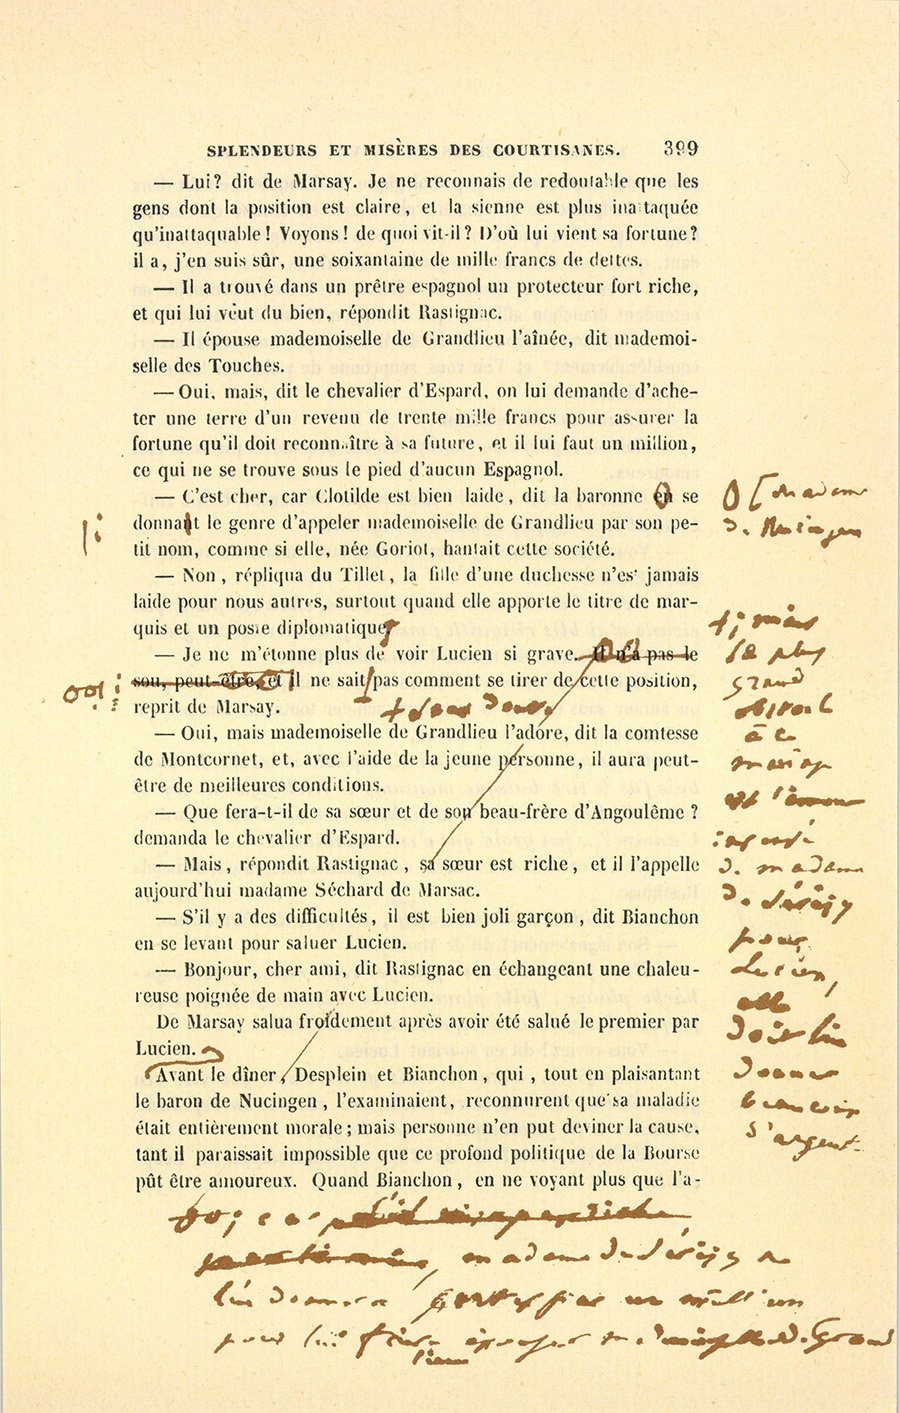 SPLENDEURS ET MISÈRES DES COURTISANES. 399
— Lui? dit de Marsay. Je ne reconnais de redoutable que les
gens dont la position est claire, et la sienne est plus inattaquée
qu'inattaquable! Voyons! de quoi vit-il? D'où lui vient sa fortune?
il a, j'en suis sûr, une soixantaine de mille francs de dettes.
— Il a trouvé dans un prêtre espagnol un protecteur fort riche,
et qui lui veut du bien, répondit Rastignac.
— Il épouse mademoiselle de Grandlieu l'aînée, dit mademoi-
selle des Touches.
— Oui, mais, dit le chevalier d'Espard, on lui demande d'ache-
ter une terre d'un revenu de trente mille francs pour assurer la
fortune qu'il doit reconnaître à sa future, et il lui faut un million,
ce qui ne se trouve sous le pied d'aucun Espagnol.
— C'est cher, car Clotilde est bien laide, dit la baronne en se
donnant le genre d'appeler mademoiselle de Grandlieu par son pe-
tit nom, comme si elle, née Goriot, hantait cette société.
— Non, répliqua du Tillet, la fille d'une duchesse n'est jamais
laide pour nous autres, surtout quand elle apporte le titre de mar-
quis et un poste diplomatique
— Je ne m'étonne plus de voir Lucien si grave. Il n'a pas le
sou, peut-être, et il ne sait pas comment se tirer de cette position,
reprit de Marsay.
+ sans doute
— Oui, mais mademoiselle de Grandlieu l'adore, dit la comtesse
de Montcornet, et, avec l'aide de la jeune personne, il aura peut-
être de meilleures conditions.
— Que fera-t-il de sa sœur et de son beau-frère d'Angoulême?
demanda le chevalier d'Espard.
— Mais, répondit Rastignac, sa sœur est riche, et il l'appelle
aujourd'hui madame Séchard de Marsac.
— S'il y a des difficultés, il est bien joli garçon, dit Bianchon
en se levant pour saluer Lucien.
— Bonjour, cher ami, dit Rastignac en échangeant une chaleu-
reuse poignée de main avec Lucien.
De Marsay salua froidement après avoir été salué le premier par
Lucien.
Avant le dîner, Desplein et Bianchon, qui, tout en plaisantant
le baron de Nucingen, l'examinaient, reconnurent que sa maladie
était entièrement morale; mais personne n'en put deviner la cause,
tant il paraissait impossible que ce profond politique de la Bourse
pût être amoureux. Quand Bianchon, en ne voyant plus que l'a-
madame
de Nucingen
+; mais
le plus
grand
obstacle
à ce
mariage
est l'amour
insensé
de madame
de Sérizy
pour
Lucien,
elle
doit lui
donner
beaucoup
d'argent.
madame de Sérizy ne
lui donnera pas un million
pour lui faire épouser mademoiselle de Grand
lieu